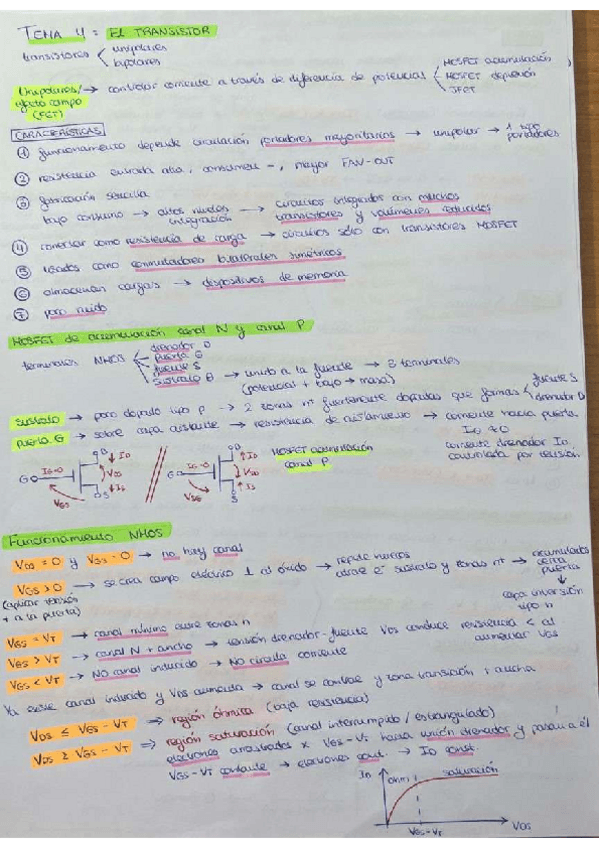 TEMA 4: EL TRANSISTOR
transistores < unipolares
bipolares
Unipolares/efecto campo (FET) → controlar corriente a través de diferencia de potencial < MOSFET acumulación
MOSFET deplexión
JFET
CARACTERÍSTICAS
① funcionamiento depende circulación portadores mayoritarios → unipolar → 1 tipo portadores
② resistencia entrada alta, consumen -, mayor FAN-OUT
③ fabricación sencilla
bajo consumo → altos niveles integración → circuitos integrados con muchos transistores y volúmenes reducidos
④ conectar como resistencia de carga → circuitos sólo con transistores MOSFET
⑤ usados como conmutadores bilaterales simétricos
⑥ almacenan cargas → dispositivos de memoria
⑦ poco ruido
MOSFET de acumulación canal N y canal P
terminales NMOS < drenador D
puerta G
fuente S
sustrato B → unido a la fuente → 3 terminales
(potencial + bajo → masa)
sustrato → poco dopado tipo P → 2 zonas n+ fuertemente dopadas que forman < fuente S
drenador D
puerta G → sobre capa aislante → resistencia de aislamiento → corriente hacia puerta
IG ≃ 0
corriente drenador ID controlada por tensión
G IG=0 D ID VDS IS S VGS
G IG=0 D ID VDS IS S VSG
MOSFET acumulación canal P
Funcionamiento NMOS
VDS = 0 y VGS = 0 → no hay canal
VGS > 0 → se crea campo eléctrico ⊥ al óxido → repele huecos
atrae e- sustrato y zonas n+ → acumulados cerca puerta
(aplicar tensión + a la puerta)
↓ capa inversión tipo n
VGS = VT → canal mínimo entre zonas n
VGS > VT → canal N + ancho → tensión drenador-fuente VDS conduce resistencia < al aumentar VGS
VGS < VT → NO canal inducido → NO circula corriente
Ya existe canal inducido y VDS aumenta → canal se contrae y zona transición + ancha
VDS ≤ VGS - VT ⇒ región óhmica (baja resistencia)
VDS ≥ VGS - VT ⇒ región saturación (canal interrumpido / estrangulado)
electrones arrastrados x VGS-VT hacia unión drenador y pasan a él
VGS-VT constante → electrones const. → ID const.
ID ohm saturación
VGS-VT VDS